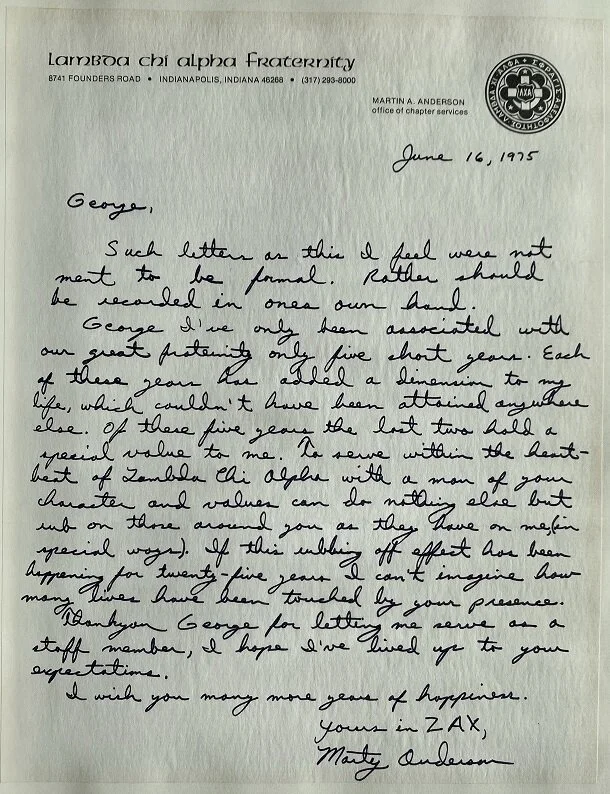 Lambda chi alpha Fraternity
8741 FOUNDERS ROAD • INDIANAPOLIS, INDIANA 46268 • (317) 293-8000
MARTIN A. ANDERSON
office of chapter services
ΛΧΑ
June 16, 1975
George,
Such letters as this I feel were not
ment to be formal. Rather should
be recorded in ones own hand.
George I've only been associated with
our great fraternity only five short years. Each
of these years has added a dimension to my
life, which couldn't have been attained anywhere
else. Of these five years the last two hold a
special value to me. To serve within the heart-
beat of Lambda Chi Alpha with a man of your
character and values can do nothing else but
rub on those around you as they have on me, (in
special ways). If this rubbing off effect has been
happening for twenty-five years I can't imagine how
many lives have been touched by your presence.
Thankyou George for letting me serve as a
staff member, I hope I've lived up to your
expectations.
I wish you many more years of happiness.
Yours in ZAX,
Marty Anderson